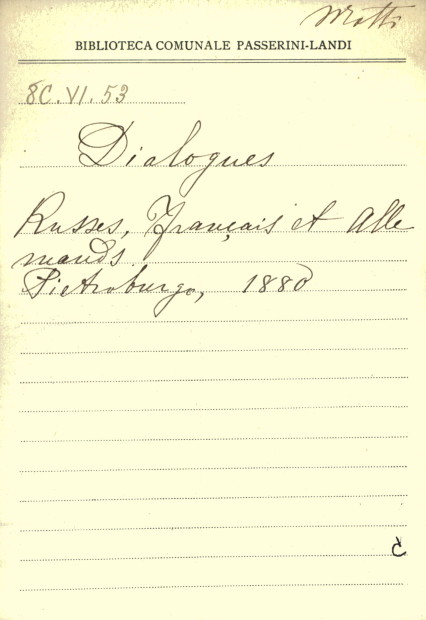 Motti
BIBLIOTECA COMUNALE PASSERINI-LANDI
8C.VI.53
Dialogues
Russes, Français et Alle
mands.
Pietroburgo, 1880
C